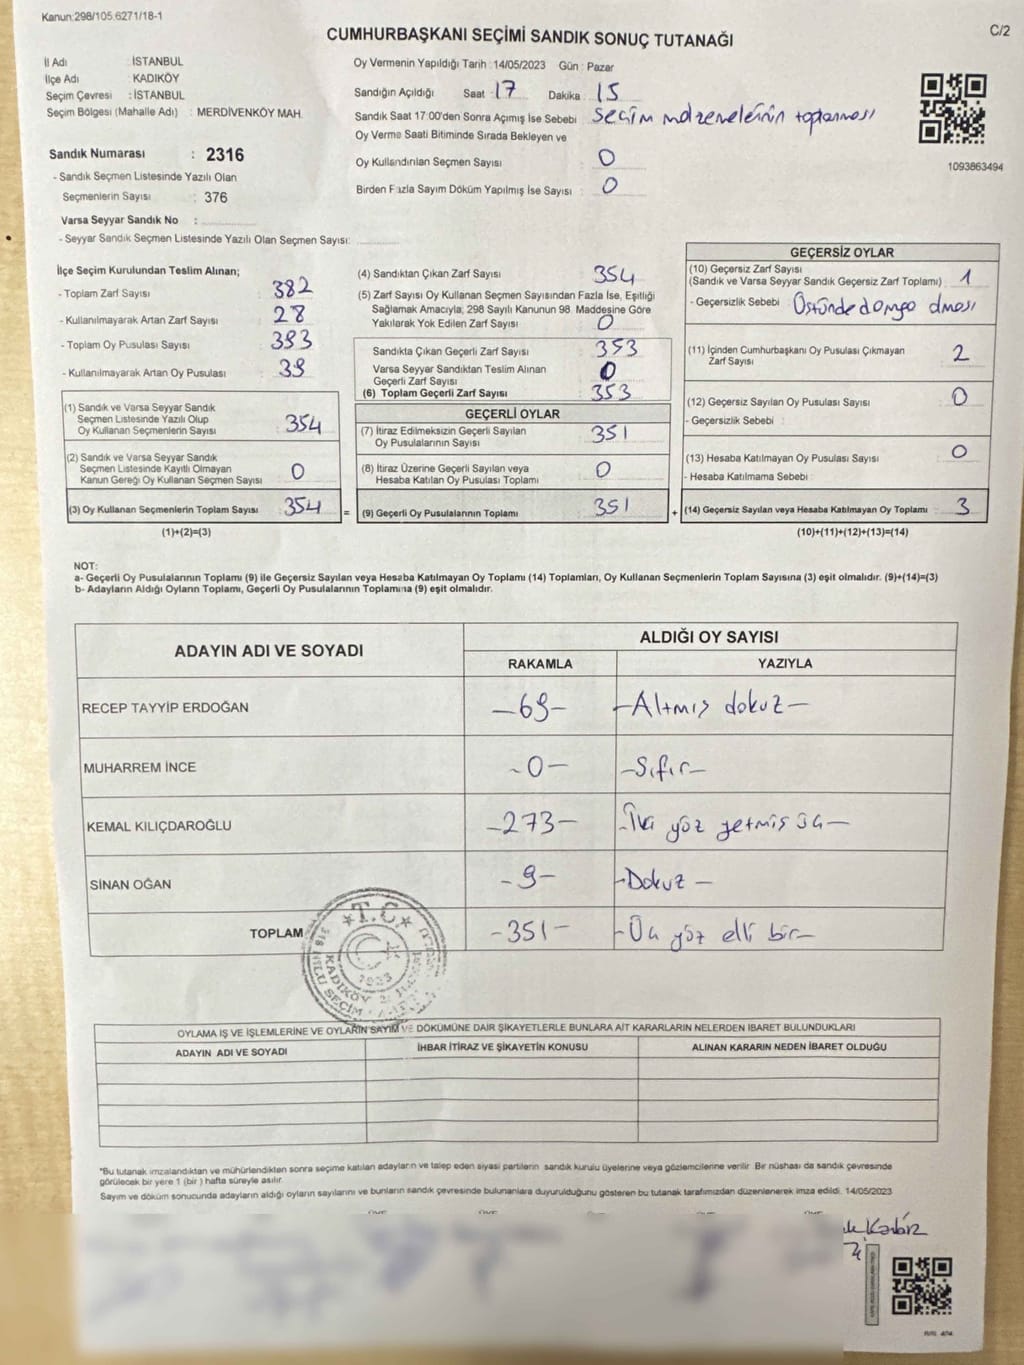 Kanun:298/105.6271/18-1
C/2
CUMHURBAŞKANI SEÇİMİ SANDIK SONUÇ TUTANAĞI
İl Adı : İSTANBUL
İlçe Adı : KADIKÖY
Seçim Çevresi : İSTANBUL
Seçim Bölgesi (Mahalle Adı) : MERDİVENKÖY MAH.
Sandık Numarası : 2316
- Sandık Seçmen Listesinde Yazılı Olan
Seçmenlerin Sayısı : 376
Varsa Seyyar Sandık No :
- Seyyar Sandık Seçmen Listesinde Yazılı Olan Seçmen Sayısı:
Oy Vermenin Yapıldığı Tarih : 14/05/2023 Gün : Pazar
Sandığın Açıldığı Saat : 17 Dakika : 15
Sandık Saat 17:00'den Sonra Açımış İse Sebebi : Seçim malzemelerinin toplanması
Oy Verme Saati Bitiminde Sırada Bekleyen ve
Oy Kullandırılan Seçmen Sayısı : 0
Birden Fazla Sayım Döküm Yapılmış İse Sayısı : 0
1093863494
İlçe Seçim Kurulundan Teslim Alınan;
- Toplam Zarf Sayısı : 382
- Kullanılmayarak Artan Zarf Sayısı : 28
- Toplam Oy Pusulası Sayısı : 393
- Kullanılmayarak Artan Oy Pusulası : 39
(1) Sandık ve Varsa Seyyar Sandık
Seçmen Listesinde Yazılı Olup
Oy Kullanan Seçmenlerin Sayısı : 354
(2) Sandık ve Varsa Seyyar Sandık
Seçmen Listesinde Kayıtlı Olmayan
Kanun Gereği Oy Kullanan Seçmen Sayısı : 0
(3) Oy Kullanan Seçmenlerin Toplam Sayısı : 354 =
(1)+(2)=(3)
(4) Sandıktan Çıkan Zarf Sayısı : 354
(5) Zarf Sayısı Oy Kullanan Seçmen Sayısından Fazla İse, Eşitliği
Sağlamak Amacıyla, 298 Sayılı Kanunun 98. Maddesine Göre
Yakılarak Yok Edilen Zarf Sayısı : 0
Sandıkta Çıkan Geçerli Zarf Sayısı : 353
Varsa Seyyar Sandıktan Teslim Alınan
Geçerli Zarf Sayısı : 0
(6) Toplam Geçerli Zarf Sayısı : 353
GEÇERLİ OYLAR
(7) İtiraz Edilmeksizin Geçerli Sayılan
Oy Pusulalarının Sayısı : 351
(8) İtiraz Üzerine Geçerli Sayılan veya
Hesaba Katılan Oy Pusulası Toplamı : 0
(9) Geçerli Oy Pusulalarının Toplamı : 351 +
GEÇERSİZ OYLAR
(10) Geçersiz Zarf Sayısı
(Sandık ve Varsa Seyyar Sandık Geçersiz Zarf Toplamı) : 1
- Geçersizlik Sebebi : Üstünde damga olması
(11) İçinden Cumhurbaşkanı Oy Pusulası Çıkmayan
Zarf Sayısı : 2
(12) Geçersiz Sayılan Oy Pusulası Sayısı : 0
- Geçersizlik Sebebi :
(13) Hesaba Katılmayan Oy Pusulası Sayısı : 0
- Hesaba Katılmama Sebebi :
(14) Geçersiz Sayılan veya Hesaba Katılmayan Oy Toplamı : 3
(10)+(11)+(12)+(13)=(14)
NOT:
a- Geçerli Oy Pusulalarının Toplamı (9) ile Geçersiz Sayılan veya Hesaba Katılmayan Oy Toplamı (14) Toplamları, Oy Kullanan Seçmenlerin Toplam Sayısına (3) eşit olmalıdır. (9)+(14)=(3)
b- Adayların Aldığı Oyların Toplamı, Geçerli Oy Pusulalarının Toplamına (9) eşit olmalıdır.
ADAYIN ADI VE SOYADI ALDIĞI OY SAYISI
RAKAMLA YAZIYLA
RECEP TAYYİP ERDOĞAN -69- -Altmış dokuz-
MUHARREM İNCE -0- -Sıfır-
KEMAL KILIÇDAROĞLU -273- -İki yüz yetmiş üç-
SİNAN OĞAN -9- -Dokuz-
TOPLAM -351- -Üç yüz elli bir-
T.C.
1923
KADIKÖY
OYLAMA İŞ VE İŞLEMLERİNE VE OYLARIN SAYIM VE DÖKÜMÜNE DAİR ŞİKAYETLERLE BUNLARA AİT KARARLARIN NELERDEN İBARET BULUNDUKLARI
ADAYIN ADI VE SOYADI İHBAR İTİRAZ VE ŞİKAYETİN KONUSU ALINAN KARARIN NEDEN İBARET OLDUĞU
*Bu tutanak imzalandıktan ve mühürlendikten sonra seçime katılan adayların ve talep eden siyasi partilerin sandık kurulu üyelerine veya gözlemcilerine verilir. Bir nüshası da sandık çevresinde
görülecek bir yere 1 (bir) hafta süreyle asılır.
Sayım ve döküm sonucunda adayların aldığı oyların sayılarını ve bunların sandık çevresinde bulunanlara duyurulduğunu gösteren bu tutanak tarafımızdan düzenlenerek imza edildi. 14/05/2023